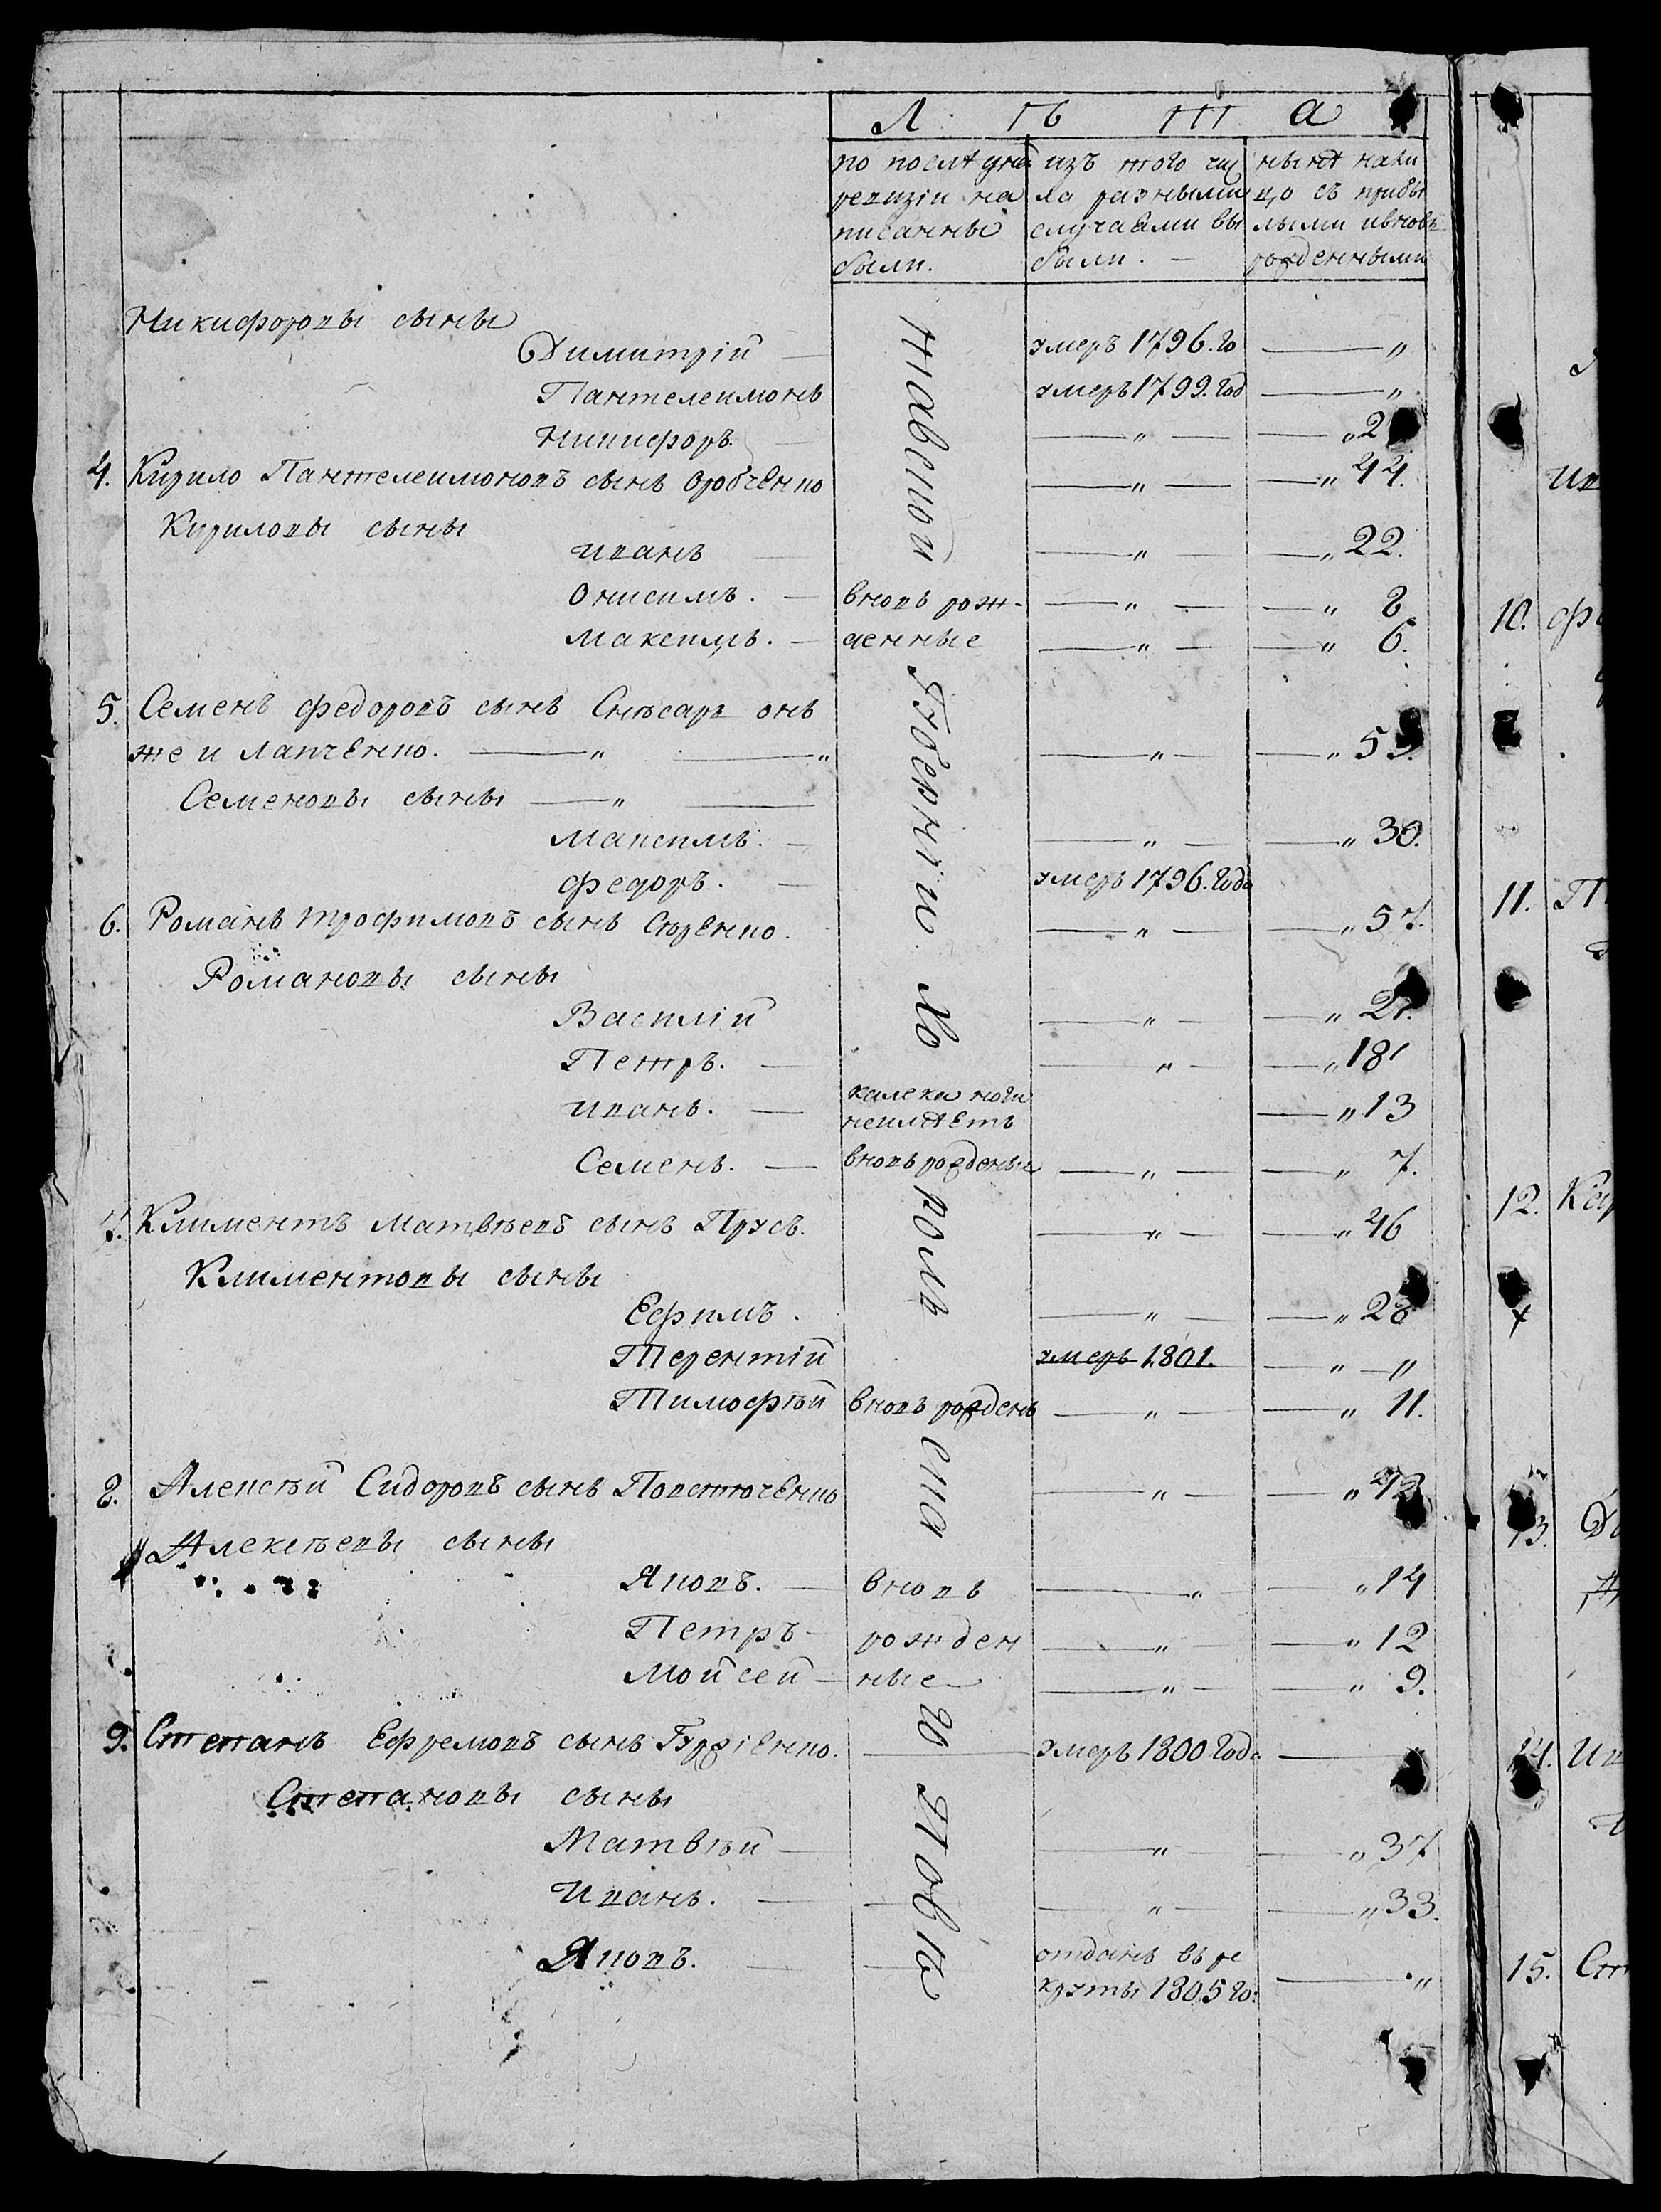 Л Ѣ Т А
по послѣдне изъ того чис нынѣ нали
ревизіи на ла разными цо съ прибы
писанны случаями вы лыми и вновь
были. были. рожденными
Никифоровы сыны
Димитрій умеръ 1796. го "
Пантелеимонъ умеръ 1799. год "
Никифоръ. " "
4. Кирило Пантелеимоновъ сынъ Оробченко " " 44.
Кириловы сыны
Иванъ " " 22.
Онисимъ. вновь рож- " " 8
Максимъ. денные " " 6.
5. Семенъ Федоровъ сынъ Слѣсарь онъ
же и Лапченко. " " " "
Семеновы сыны "
Максимъ. " " 30.
Федоръ. умеръ 1796. года
6. Романъ Трофимовъ сынъ " " 57.
Романовы сыны
Василій " " 21.
Петръ. " " 18
Иванъ. калека ноги " 13
неимѣетъ
Семенъ. вновь рожденые " " 7.
7. Климентъ Матвѣевъ сынъ Прусъ. " " 46
Климентовы сыны
Ефимъ. " " 28
Терентій умеръ 1801. " "
Тимофѣй вновь рожденъ " " 11.
8. Алексѣй Сидоровъ сынъ " "
Алексѣевы сыны
Яковъ. вновь " " 14
Петръ рожден " " 12
Мойсей ные " " 9.
9. Степанъ Ефремовъ сынъ умеръ 1800 года
Степановы сыны
Матвѣй " " 37
Иванъ. " " 33.
Яковъ. отданъ въ ре
круты 1805 го: "
10.
11.
12.
13.
14.
15.